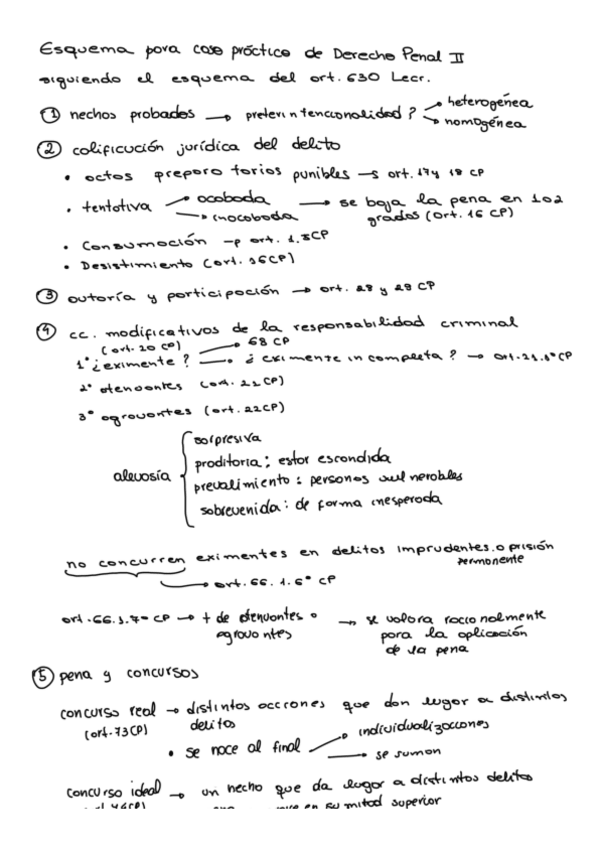 Esquema para caso práctico de Derecho Penal II
siguiendo el esquema del art. 650 Lecr.
① hechos probados → preterintencionalidad? → heterogénea
→ homogénea
② calificación jurídica del delito
• actos preparatorios punibles → art. 17 y 18 CP
• tentativa → acabada
→ inacabada → se baja la pena en 1 o 2 grados (art. 16 CP)
• Consumación → art. 15 CP
• Desistimiento (art. 16 CP)
③ autoría y participación → art. 28 y 29 CP
④ cc. modificativos de la responsabilidad criminal
(art. 20 CP) → 68 CP
1º ¿eximente? → ¿eximente incompleta? → art. 21.1º CP
2º atenuantes (art. 21 CP)
3º agravantes (art. 22 CP)
alevosía
sorpresiva
proditoria: estar escondida
prevalimiento: personas vulnerables
sobrevenida: de forma inesperada
no concurren eximentes en delitos imprudentes. o prisión
permanente
→ art. 66.1.6º CP
art. 66.1.7º CP → + de atenuantes o → se valora racionalmente
agravantes para la aplicación
de la pena
⑤ pena y concursos
concurso real → distintos acciones que dan lugar a distintos
(art. 73 CP) delitos
• se hace al final → individualizaciones
→ se suman
concurso ideal → un hecho que da lugar a distintos delitos
en su mitad superior